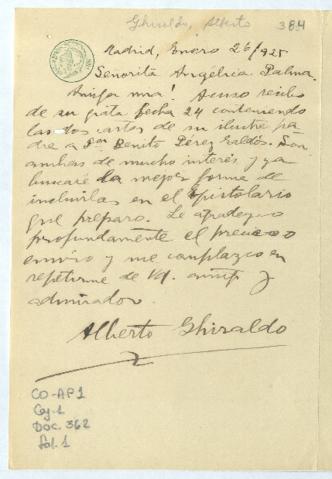 Ghiraldo, Alberto 384
Madrid, Enero 26/925
Señorita Angélica Palma.
Amiga mia! Acuso recibo
de su grata fecha 24 conteniendo
las dos cartas de su ilustre pa-
dre a Don Benito Pérez Galdós. Son
ambas de mucho interés y ya
buscaré la mejor forma de
incluirlas en el Epistolario
que preparo. Le agradezco
profundamente el precioso
envío y me complazco en
repetirme de Vd. amigo y
admirador.
Alberto Ghiraldo
CO-AP1
Caj-1
Doc. 362
fol. 1